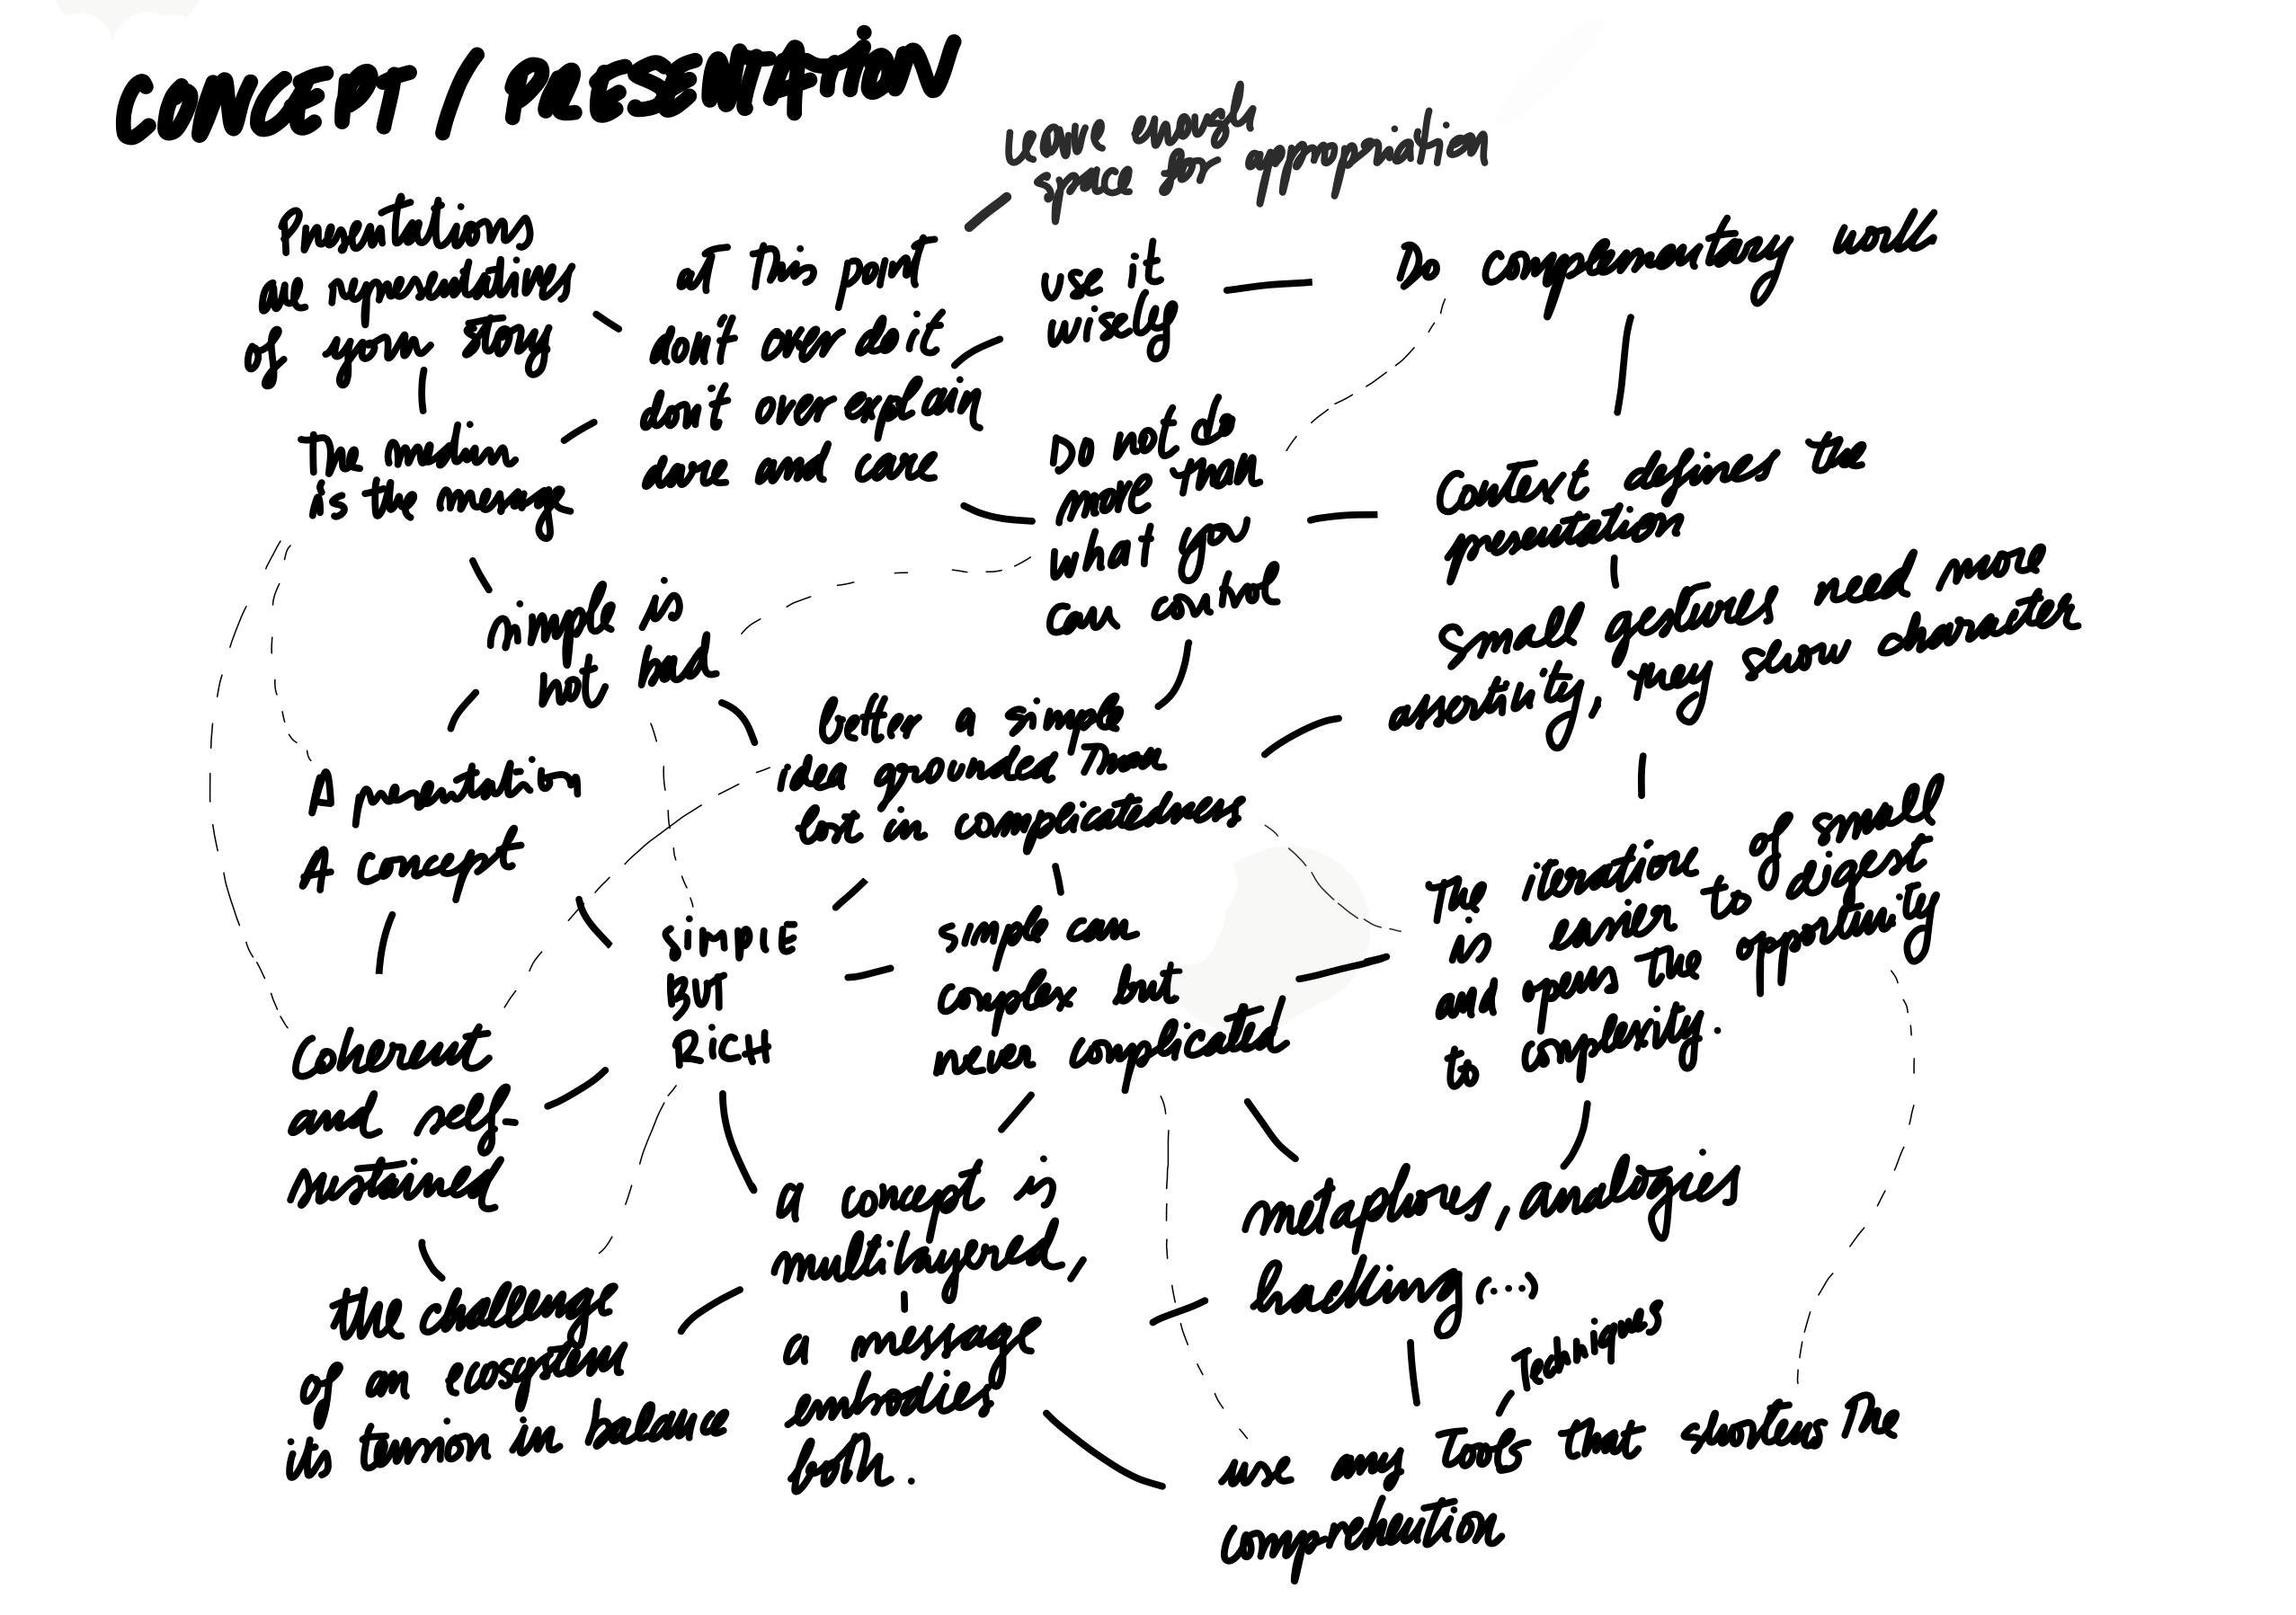 CONCEPT / PRESENTATION
leave enough
space for appropriation
Presentations
are representatives
of your story
at this point
don't over do it
don't over explain
dare and care
use it
wisely
Do complementary work
The medium
is the message
Do not do
more than
what you
can control
Context defines the
presentation
simple is
not bad
Small gestures need more
assertivity, they show character
better a simple
idea grounded than
lost in complicatedness
A presentation
A concept
The iteration of small
is easier to digest
and opens the opportunity
to complexity.
SIMPLE
BUT
RICH
simple can
complex but
never complicated
Coherent
and self-
sustained
a concept is
multilayered,
a message
embodies
both.
metaphores, analogies
hacking (...)
the challenge
of an ecosystem
its tension in balance
Techniques
use any tools that shortens the
comprehention